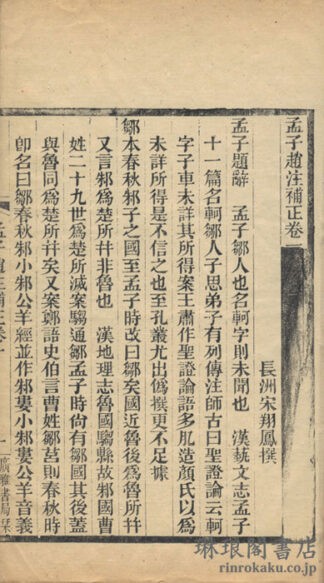 孟子趙注補正卷一
長洲宋翔鳳撰
孟子題辭　孟子鄒人也名軻字則未聞也　漢藝文志孟子
十一篇名軻鄒人子思弟子有列傳注師古曰聖證論云軻
字子車未詳其所得案王肅作聖證論語多肊造顏氏以爲
未詳所得是不信之也至孔叢尤出僞撰更不足據
鄒本春秋邾子之國至孟子時改曰鄒矣國近魯後爲魯所并
又言邾爲楚所并非魯也　漢地理志魯國騶縣故邾國曹
姓二十九世爲楚所滅案騶通鄒孟子時尚有鄒國其後蓋
與魯同爲楚所并矣又案鄭語史伯言曹姓鄒莒則春秋時
卽名曰鄒春秋邾小邾公羊經並作邾婁小邾婁公羊音義
孟子趙注補正卷一
一
廣雅書局栞
琳琅閣書店
rinrokaku.co.jp